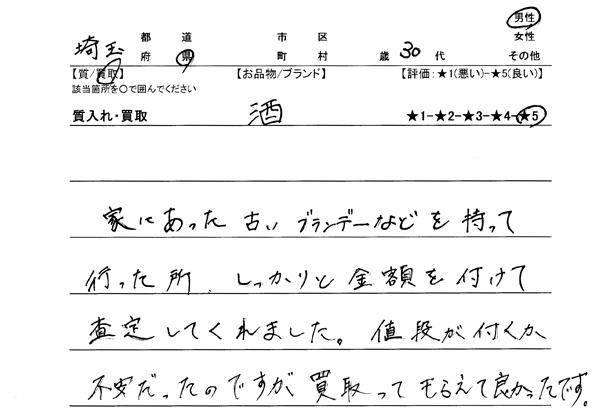 都 道 市 区 男性
埼玉 女性
府 県 町 村 歳 30 代 その他
【質/買取】 【お品物/ブランド】 【評価：★1(悪い)-★5(良い)】
該当箇所を○で囲んでください
質入れ・買取 酒 ★1-★2-★3-★4-★5
家にあった古いブランデーなどを持って
行った所、しっかりと金額を付けて
査定してくれました。値段が付くか
不安だったのですが買取ってもらえて良かったです。